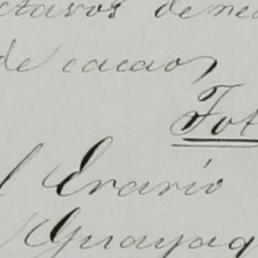 ctavos de ne
de cacao
Tot
l Erario
Guayaq